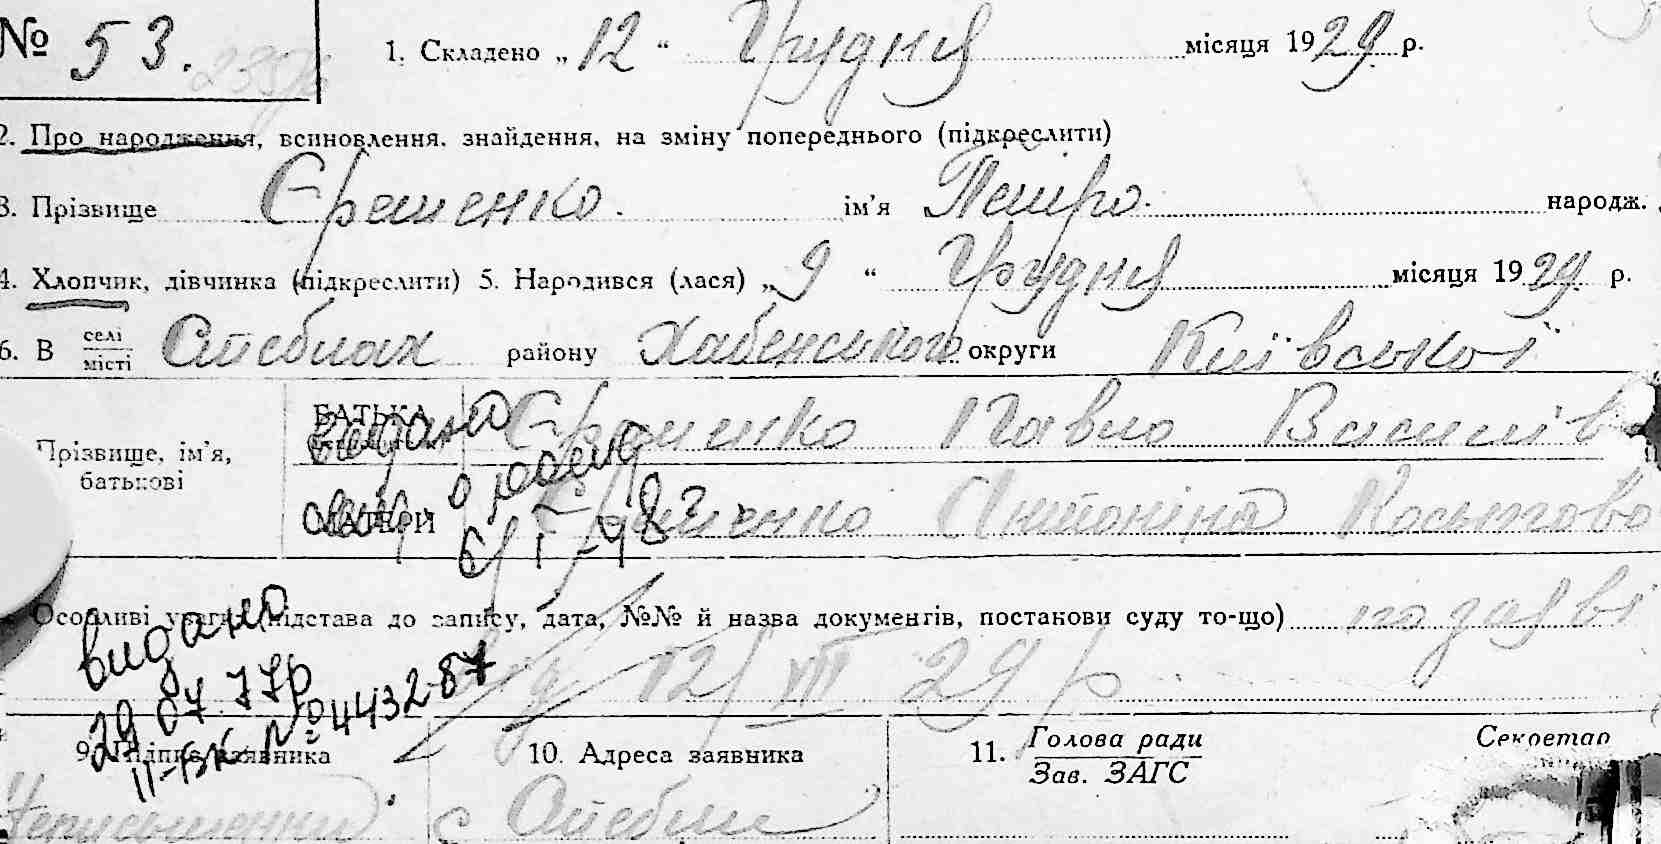 № 53.
1. Складено „12“ Грудня місяця 1929 р.
2. Про народження, всиновлення, знайдення, на зміну попереднього (підкреслити)
3. Прізвище Єременко. ім'я Петро. народж.
4. Хлопчик, дівчинка (підкреслити) 5. Народився (лася) „9“ Грудня місяця 1929 р.
6. В селі місті Стеблах району Хабенського округи Київської
Прізвище, ім'я, батькові
БАТЬКА Єременко Павло Василів
МАТЕРИ Єременко Антоніна
видано
6/I-48
Особливі уваги (підстава до запису, дата, №№ й назва документів, постанови суду то-що) по заяві
12/XII 29 р
видано
29 07 77р
II-БК №443287
9. Підпис заявника
10. Адреса заявника
11. Голова ради
Зав. ЗАГС
Секретар
Неписьменний
с Стебли